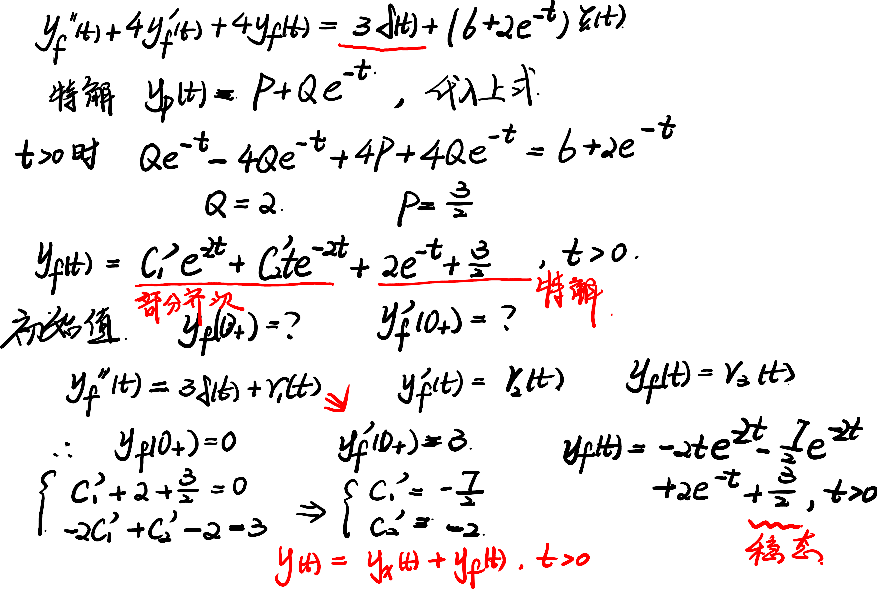 y_f''(t)+4y_f'(t)+4y_f(t)=3δ(t)+(6+2e^{-t})ε(t)
特解 y_p(t)=P+Qe^{-t}，代入上式.
t>0时 Qe^{-t}-4Qe^{-t}+4P+4Qe^{-t}=6+2e^{-t}
Q=2. P=3/2
y_f(t)=C_1'e^{-2t}+C_2'te^{-2t}+2e^{-t}+3/2，t>0.
部分齐次 特解
初始值. y_f(0+)=? y_f'(0+)=?
y_f''(t)=3δ(t)+r_1(t) y_f'(t)=r_2(t) y_f(t)=r_3(t)
∴ y_f(0+)=0 y_f'(0+)=3.
{C_1'+2+3/2=0
-2C_1'+C_2'-2=3
⇒ {C_1'=-7/2
C_2'=-2.
y_f(t)=-2te^{-2t}-7/2e^{-2t}
+2e^{-t}+3/2，t>0
稳态
y(t)=y_x(t)+y_f(t). t>0